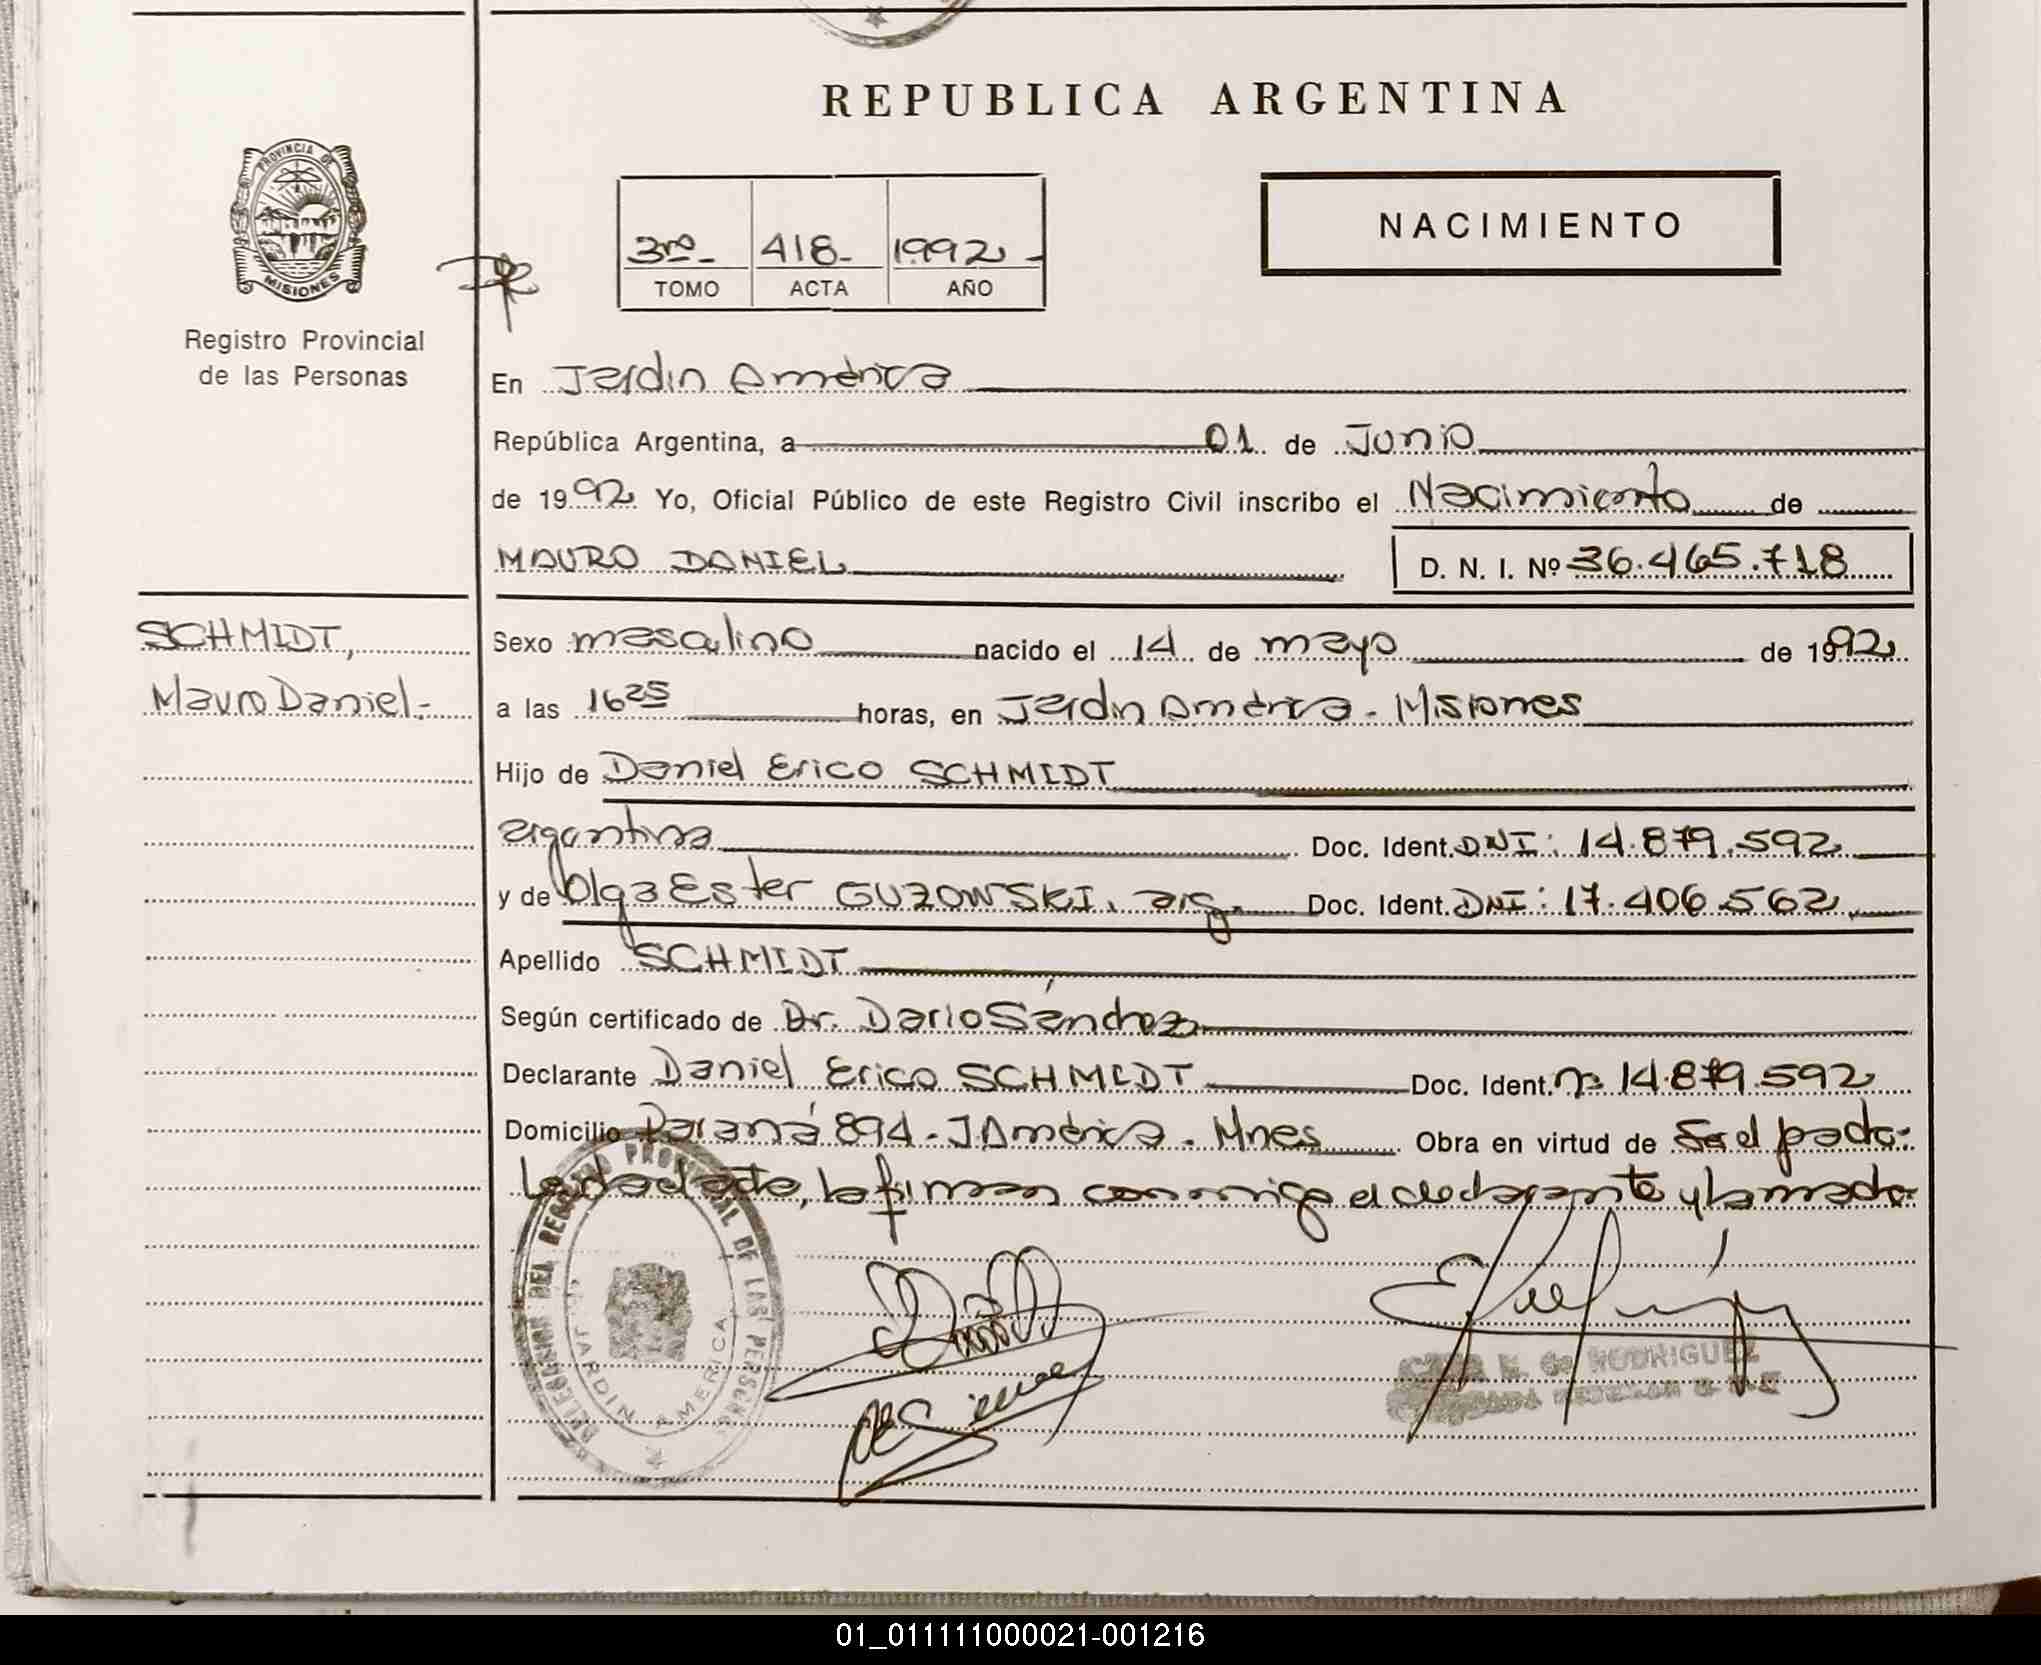 REPUBLICA ARGENTINA
PROVINCIA DE
MISIONES
Registro Provincial
de las Personas
3ro 418 1992
TOMO ACTA AÑO
NACIMIENTO
En Jardín América
República Argentina, a 01 de Junio
de 1992 Yo, Oficial Público de este Registro Civil inscribo el Nacimiento de
MAURO DANIEL D. N. I. Nº 36.465.718
SCHMIDT,
Mauro Daniel.-
Sexo masculino nacido el 14 de mayo de 1992
a las 16 25 horas, en Jardín América - Misiones
Hijo de Daniel Erico SCHMIDT
argentina Doc. Ident. DNI: 14.879.592
y de Olga Ester GUZOWSKI, arg. Doc. Ident. DNI: 17.406.562
Apellido SCHMIDT
Según certificado de Dr. Darío Sánchez
Declarante Daniel Erico SCHMIDT Doc. Ident. nº 14.879.592
Domicilio Paraná 894 - J. América - Mnes Obra en virtud de Ser el padre.
Leída el acta, la firman conmigo el declarante y la madre.
DELEGACION DEL REGISTRO PROVINCIAL DE LAS PERSONAS
JARDIN AMERICA
de RODRIGUEZ
01_011111000021-001216